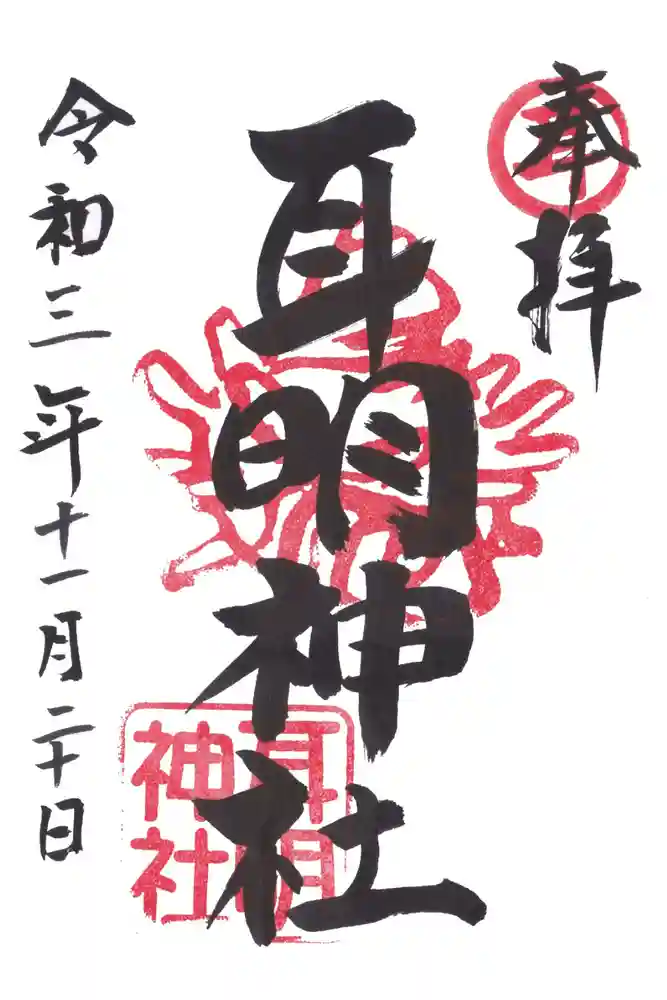 奉拝
耳明神社
令和三年十一月二十日
耳明
神社